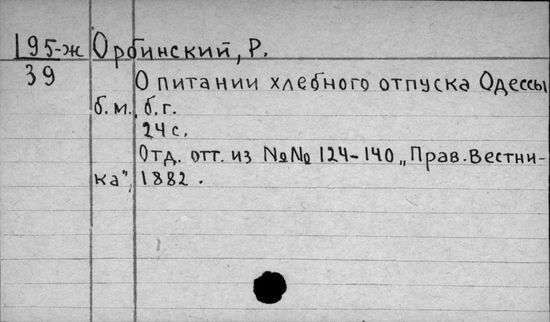 195-ж Орбинский, Р.
39
О питании хлебного отпуска Одессы
б.м., б.г.
24 с.
Отд. отт. из №№ 124-140 „Прав. Вестни-
ка", 1882.